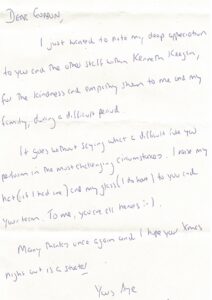 DEAR GORDON,
I just wanted to note my deep appreciation
to you and the other staff within Kenneth Keegan,
for the kindness and empathy shown to me and my
family, during a difficult period.
It goes without saying what a difficult role you
perform in the most challenging circumstances. I raise my
hat (if I had one) and my glass (I do have) to you and
your team. To me, you're all heroes :-).
Many thanks once again and I hope your Xmas
night out is a
Yours Aye